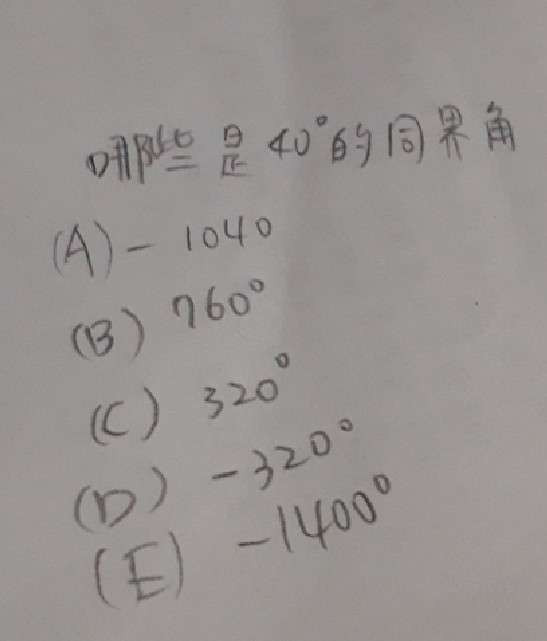 哪些是40°的同界角
(A) - 1040
(B) 760°
(C) 320°
(D) -320°
(E) -1400°